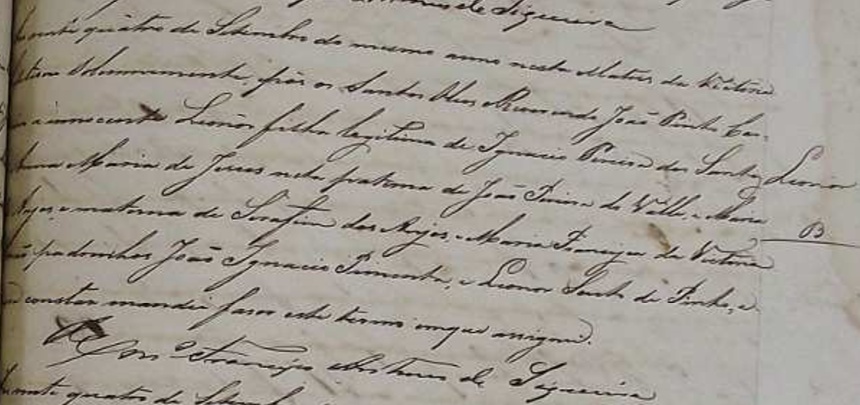 de Siqueira
quatro de Setembro do mesmo anno nesta Matriz da Victoria
solemnemente, pôs os Santos Oleos o Reverendo João Pinto
a innocente Leonor filha legitima de Ignacio Pereira dos Santos
Leonor
Maria de Jesus neta paterna de João Pereira do Valle, e Maria
B
materna de Serafim dos Anjos, e Maria Francisca da Victoria
padrinhos João Ignacio Pimenta, e Leonor de Pinho, e
constar mandei faser este termo em que assigno.
Francisco Antunes de Siqueira
quatro de